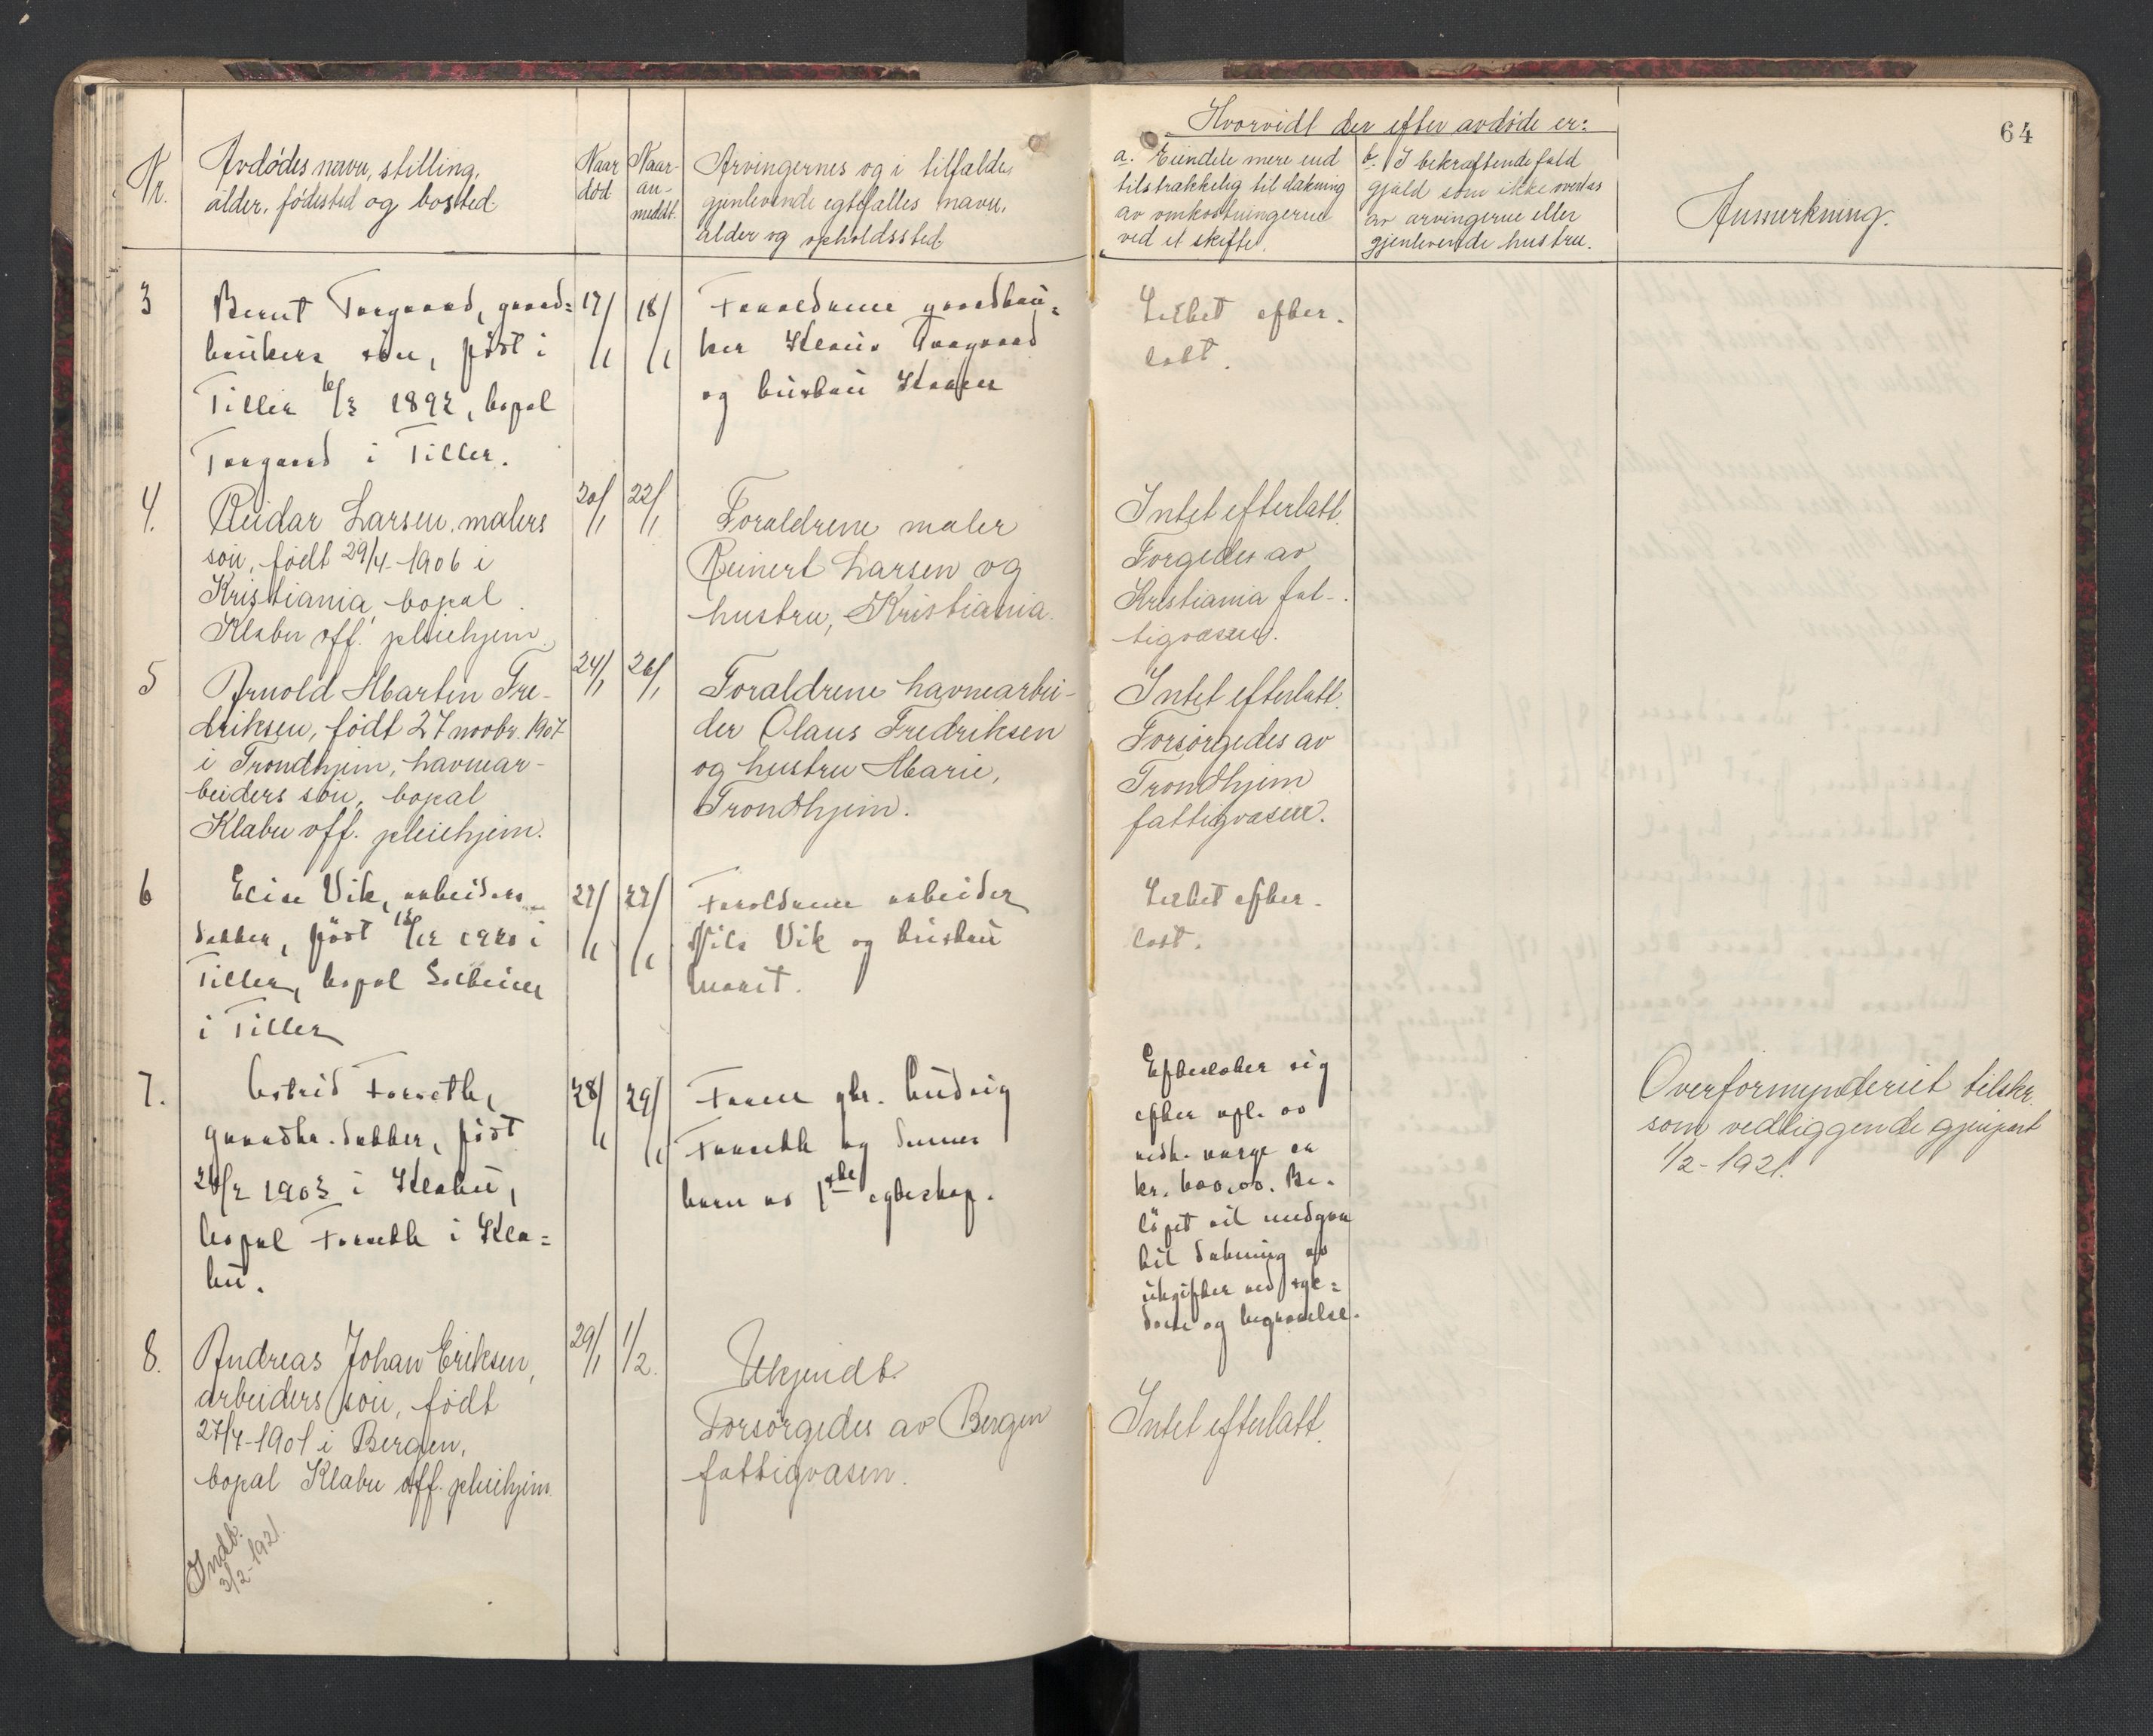 64
Hvorvidt der efter avdøde er:
Nr.
Avdødes navn, stilling,
alder, fødested og bosted.
Naar
død
Naar
an-
meldt.
Arvingernes og i tilfælde
gjenlevende egtefælles navn,
alder og opholdssted
a. Eiendele mere end
tilstrækkelig til dækning
av omkostningerne
ved et skifte.
b. I bekræftende fald
gjæld som ikke overtas
av arvingerne eller
gjenlevende hustru.
Anmerkning.
3
Bernt Torgaard, gaard=
brukers søn, født i
Tiller 1892, bopæl
Torgaard i Tiller.
17/1
18/1
Forældrene gaardbru=
ker Klaus Torgaard
og hustru Karen
Intet efter-
latt.
4.
Reidar Larsen, malers
søn, født 29/4-1906 i
Kristiania, bopæl
Klæbu off. pleiehjem
20/1
22/1
Forældrene maler
Reinert Larsen og
hustru, Kristiania.
Intet efterlatt.
Forgedes av
Kristiania fat-
tigvæsen.
5
Arnold Martin Fre-
driksen, født 27 novbr. 1907
i Trondhjem, havnear-
beiders søn, bopæl
Klæbu off. pleiehjem.
24/1
26/1
Forældrene havnearbei-
der Olaus Fredriksen
og hustru Marie,
Trondhjem.
Intet efterlatt.
Forsørgedes av
Trondhjem
fattigvæsen.
6
Elise Vik, arbeiders
datter, født 1920 i
Tiller, bopæl Solheim
i Tiller
27/1
27/1
Forældrene arbeider
Nils Vik og hustru
Marit.
Intet efter-
latt.
7.
Astrid Forseth,
gaardbr. datter, født
1903 i Klæbu,
bopæl Forseth i Klæ=
bu.
28/1
29/1
Faren gbr. Ludvig
Forseth og dennes
barn av 1ste egteskap.
Efterlater sig
efter opl. av
nedk. værge ca
kr. 600,00. Be-
løpet vil medgaa
til dækning av
utgifter ved syk=
dom og begravelse.
Overformynderiet tilskr.
som vedliggende gjenpart
1/2-1921.
8.
Andreas Johan Eriksen,
arbeiders søn, født
27/7-1901 i Bergen,
bopæl Klæbu off. pleiehjem
29/1
1/2.
Ukjendt.
Forsørgedes av Bergen
fattigvæsen.
Intet efterlatt.
Indb.
3/2-1921.